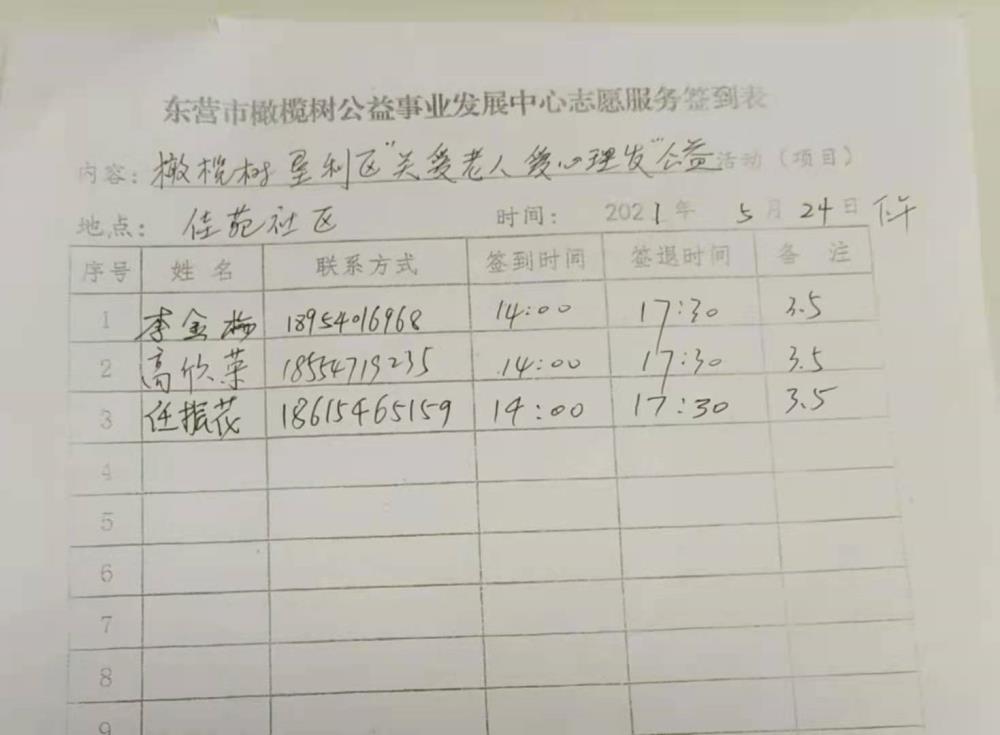 东营市橄榄树公益事业发展中心志愿服务签到表
内容：橄榄树垦利区"关爱老人爱心理发"公益活动（项目）
地点：佳苑社区 时间：2021年5月24日 下午
序号 姓名 联系方式 签到时间 签退时间 备注
1 李金梅 18954016968 14:00 17:30 3.5
2 高欣荣 18554719235 14:00 17:30 3.5
3 任振花 18615465159 14:00 17:30 3.5
4
5
6
7
8
9